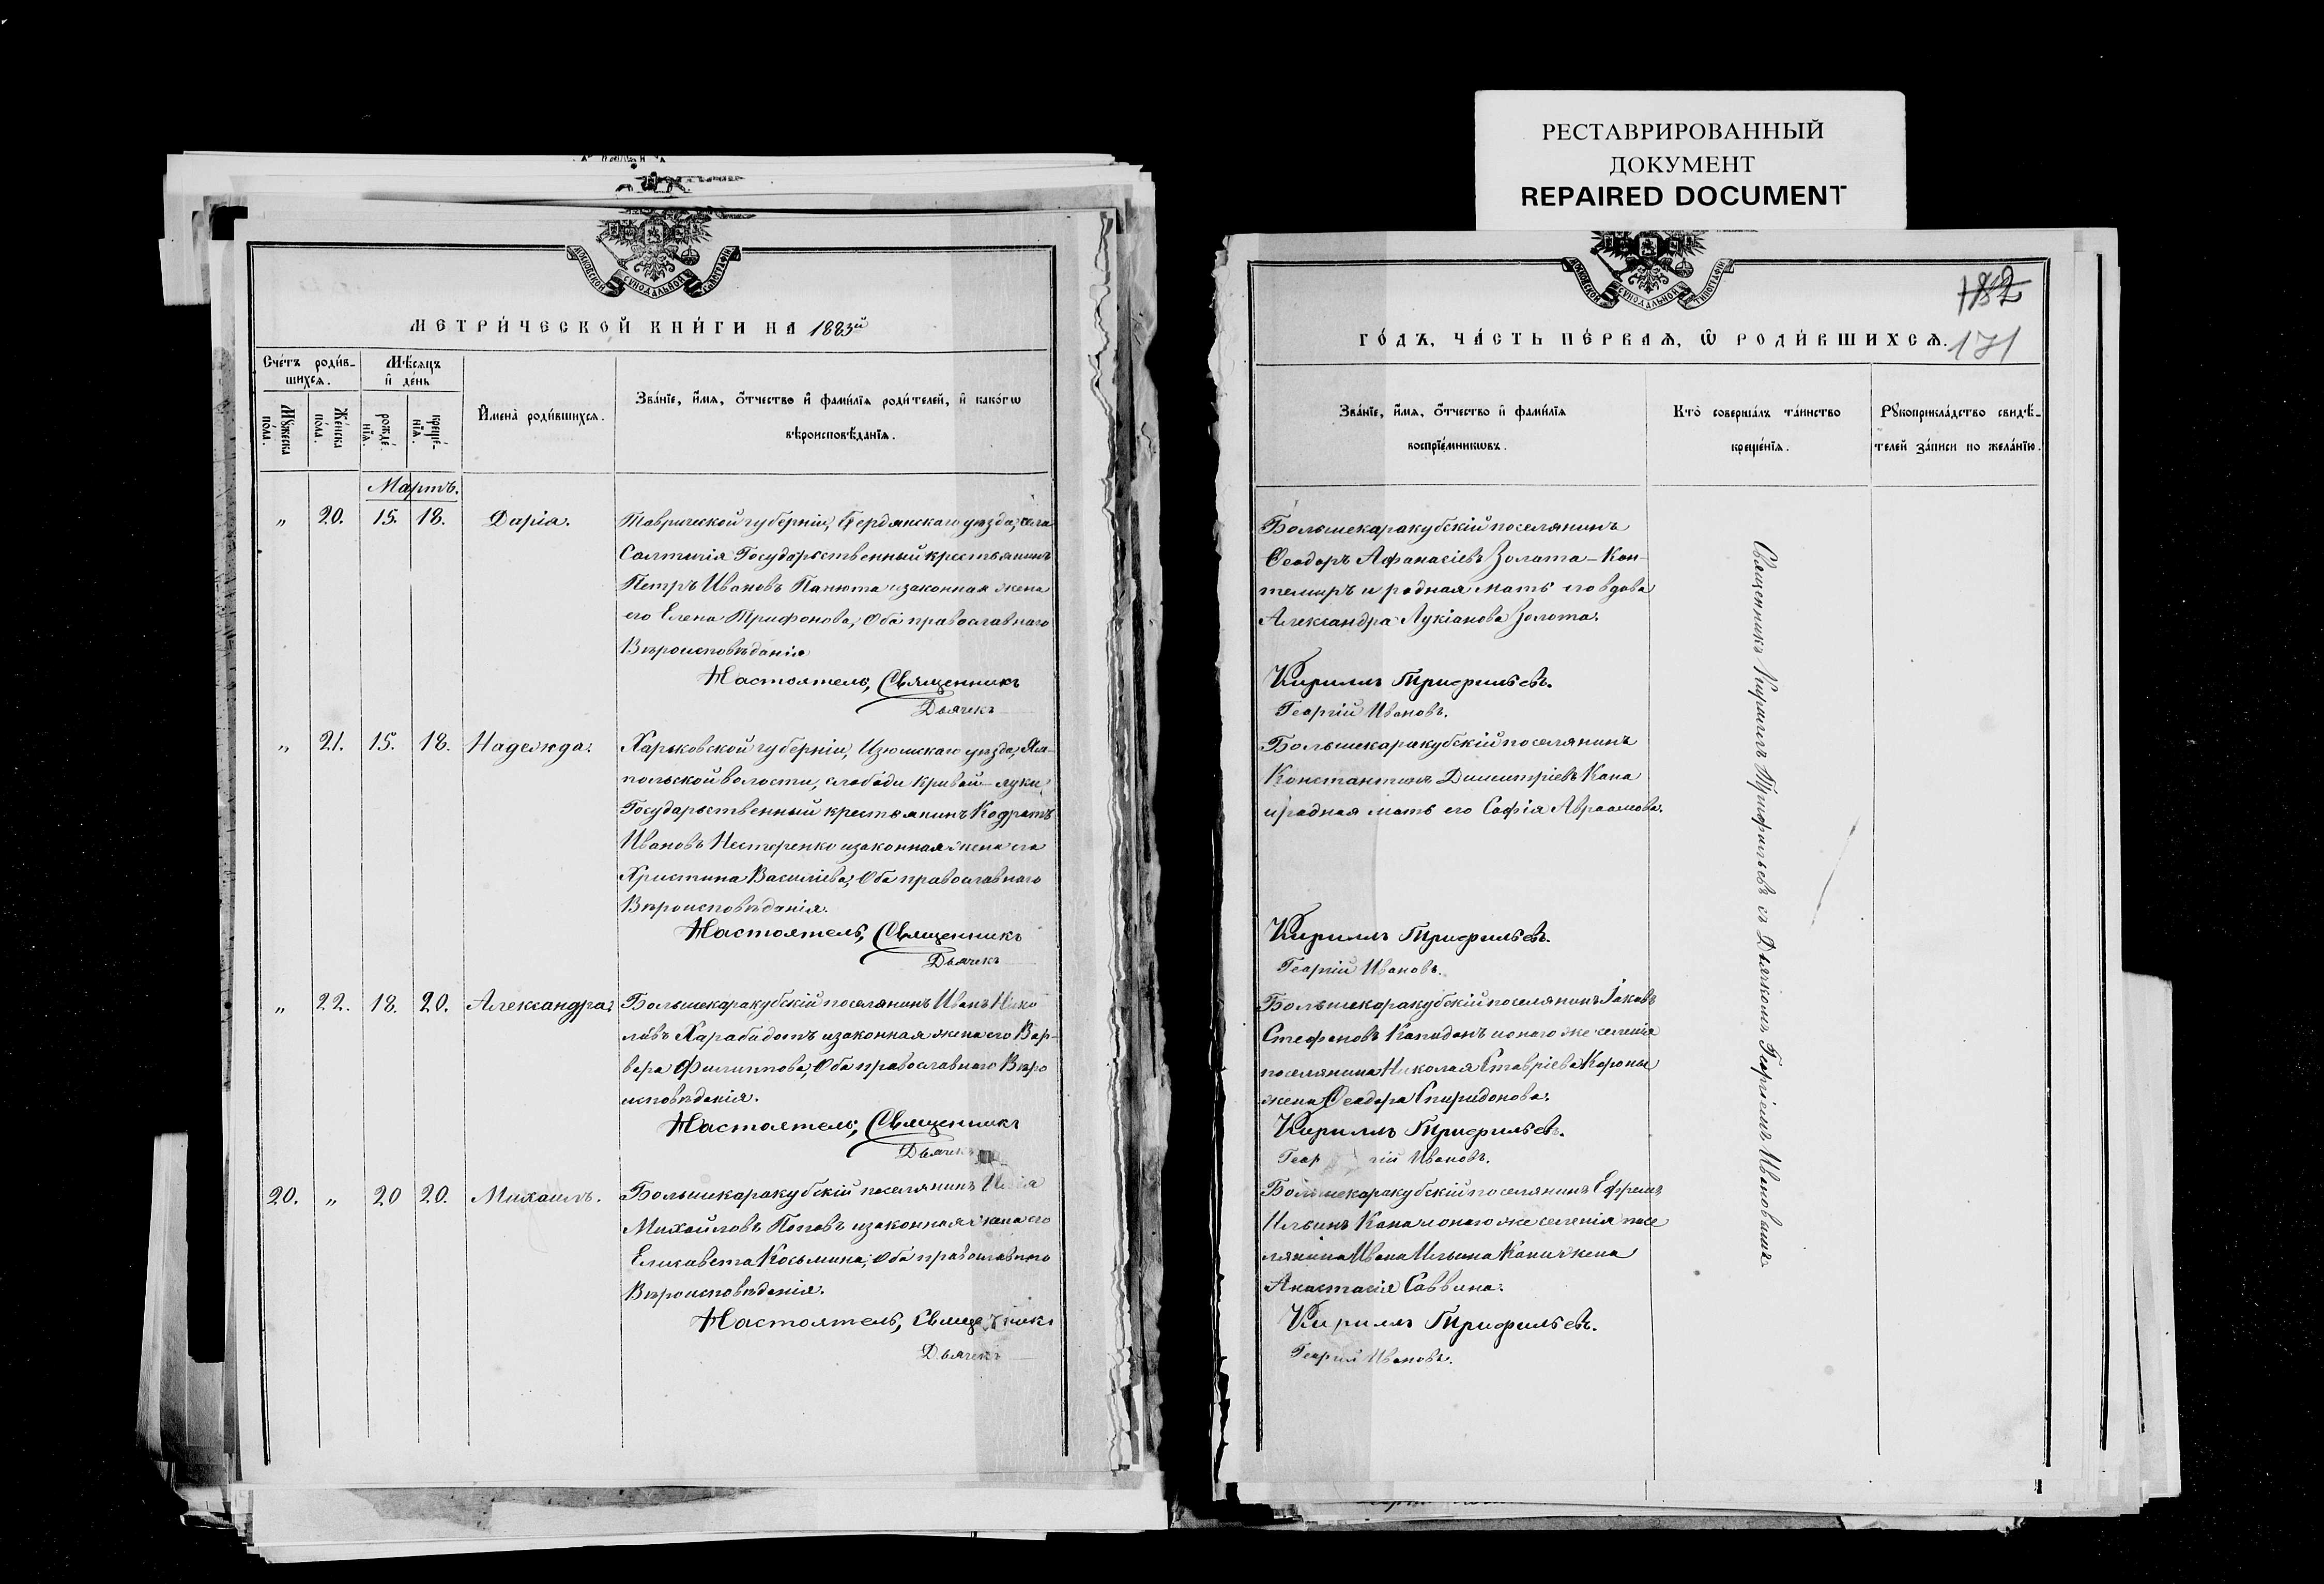 РЕСТАВРИРОВАННЫЙ
ДОКУМЕНТ
REPAIRED DOCUMENT
МОСКОВСКОЙ СѴНОДАЛЬНОЙ ТИПОГРАФІИ
МЕТРИ́ЧЕСКОЙ КНИ́ГИ НА 1883й
Сче́тъ роди́в-
шихся.
Мѣ́сяцъ
и҆ де́нь
И҆мена̀ роди́вшихся.
Зва́нїе, и҆́мя, ѻ҆́тчество и҆ фами́лїя роди́телей, и҆ како́гѡ
вѣроисповѣ́данїя.
Мꙋ́жеска
по́ла.
Же́нска
по́ла.
рожде́-
нїя.
креще́-
нїя.
Мартъ.
„ 20. 15. 18. Дарія.
Таврической губерніи, Бердянскаго уѣзда, села
Салтичія Государственный крестьянинъ
Петръ Ивановъ Панюта и законная жена
его Елена Трифонова, Оба православнаго
Вѣроисповѣданія
Настоятель, Священникъ
Дьячекъ
„ 21. 15. 18. Надежда.
Харьковской губерніи, Изюмскаго уѣзда, Ям-
польской волости, слободи Кривой-луки,
Государственный крестьянинъ Кодратъ
Ивановъ Нестеренко и законная жена его
Христина Василіева, Оба православнаго
Вѣроисповѣданія.
Настоятель, Священникъ
Дьячекъ
„ 22. 18. 20. Александра.
Большекаракубскій поселянинъ Иванъ Нико
лаевъ Харабадотъ и законная жена его Вар-
вара Филиппова, Оба православнаго Вѣро
исповѣданія.
Настоятель, Священникъ
Дьячекъ
20. „ 20 20. Михаилъ.
Большекаракубскій поселянинъ
Михайловъ Поповъ и законная жена его
Елисавета Косьмина, Оба православнаго
Вѣроисповѣданія.
Настоятель, Священникъ
Дьячекъ
МОСКОВСКОЙ СѴНОДАЛЬНОЙ ТИПОГРАФІИ
182
ГО́ДЪ, ЧА́СТЬ ПЕ́РВАѦ, Ѡ҆ РОДИ́ВШИХСѦ.
171
Зва́нїе, и҆́мя, ѻ҆́тчество и҆ фами́лїя
воспрїе́мникѡвъ.
Кто̀ соверша́лъ та́инство
креще́нїя.
Рꙋкоприкла́дство свидѣ́-
телей за́писи по жела́нїю.
Большекаракубскій поселянинъ
Ѳеодоръ Афанасіевъ Золата-Кан-
темиръ и родная мать его вдова
Александра Лукіанова Золота.
Кириллъ Трифильевъ.
Георгій Ивановъ.
Большекаракубскій поселянинъ
Константинъ Димитріевъ Капа
и родная мать его Софія Авраамова.
Кириллъ Трифильевъ.
Георгій Ивановъ.
Большекаракубскій поселянинъ Іаковъ
Стефановъ Капиданъ и онаго же селенія
поселянина Николая Ставріева Короны
жена Ѳеодора Спиридонова.
Кириллъ Трифильевъ.
Георгій Ивановъ.
Большекаракубскій поселянинъ Ефремъ
Ильинъ Капа и онаго же селенія посе
лянина Ивана Ильина Капи жена
Анастасія Саввина.
Кириллъ Трифильевъ.
Георгій Ивановъ.
Священникъ Кириллъ Трифильевъ съ Дьячкомъ Георгіемъ Ивановымъ